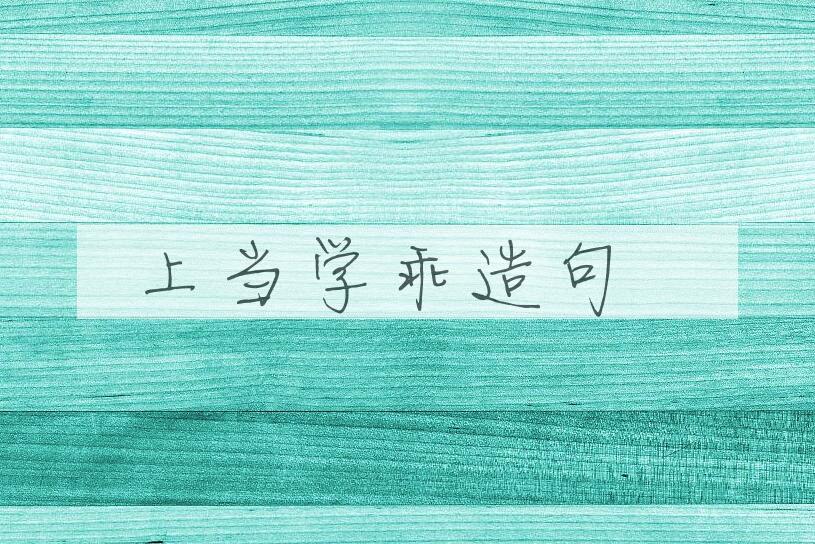 上当学乖造句